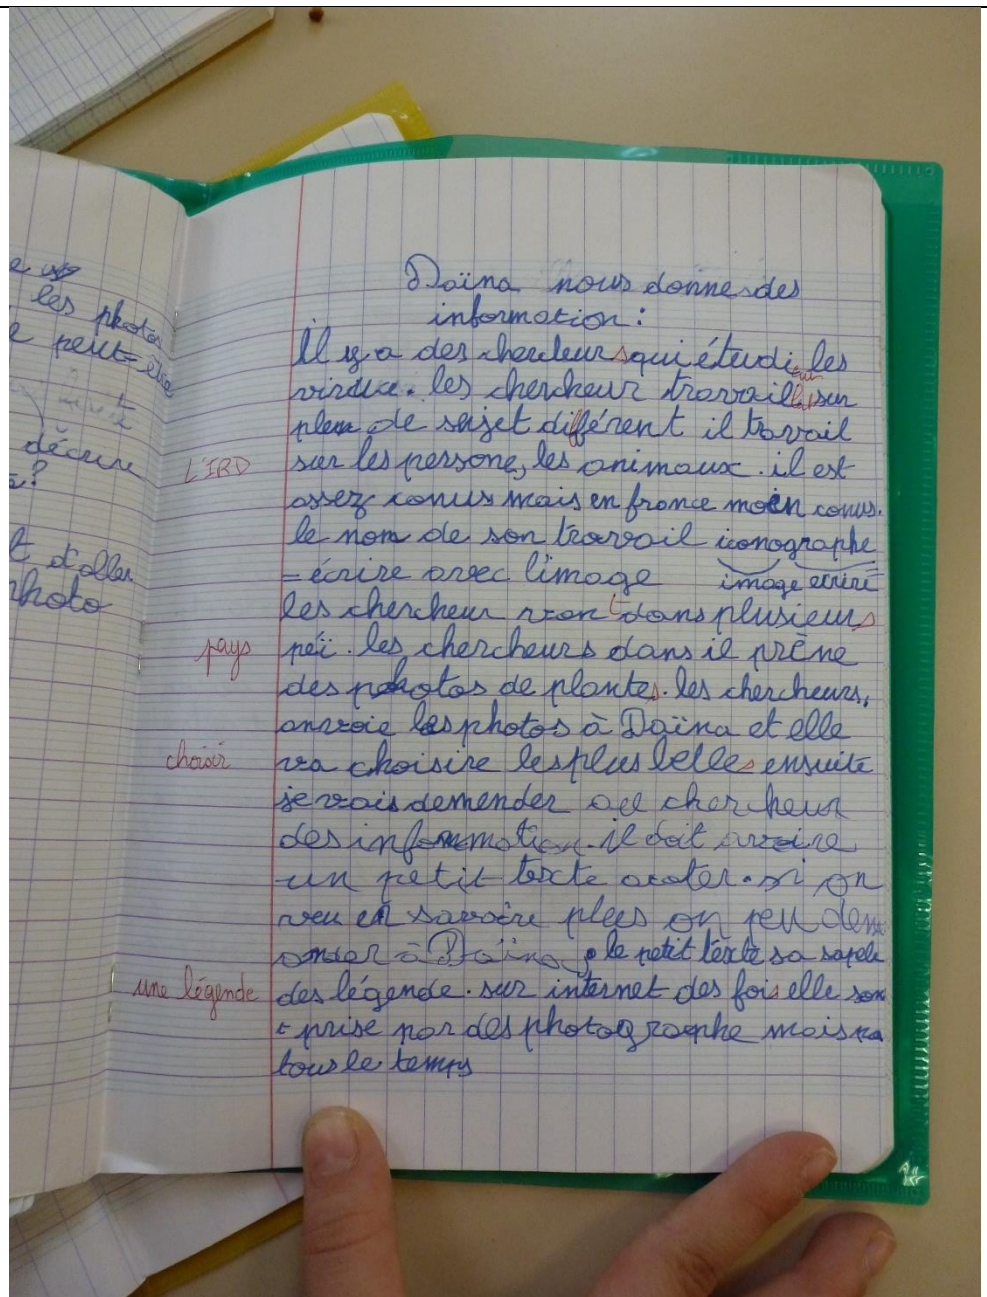 e
les photos
peut-être
décrire
?
t d'aller
photo
Daïna nous donne des
information :
Il y a des chercheurs qui étudi les
virus. les chercheur travaillent sur
plein de sujet différent il travail
L'IRD
sur les persone, les animaux. il est
assez conus mais en france moin conus.
le nom de son travail iconographe
= écrire avec l'image image ecrire
les chercheur vont dans plusieurs
pays
peï. les chercheurs dans il prène
des photos de plantes. les chercheurs,
anvoie les photos à Daïna et elle
choisir
va choisire les plus belles ensuite
je vais demender au chercheur
des information. il doit avoire
un petit texte acoter. si on
veu en savoire plus on peu dem
ander à Daïna, le petit texte sa sapele
une légende
des légende. sur internet des fois elle son
t prise par des photographe mais pa
tous le temps